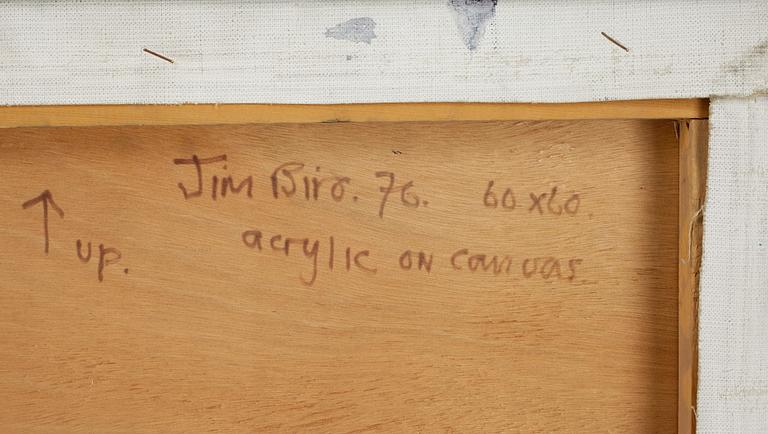 Jim Biro. 76. 60 x 60.
↑ up.
acrylic on canvas